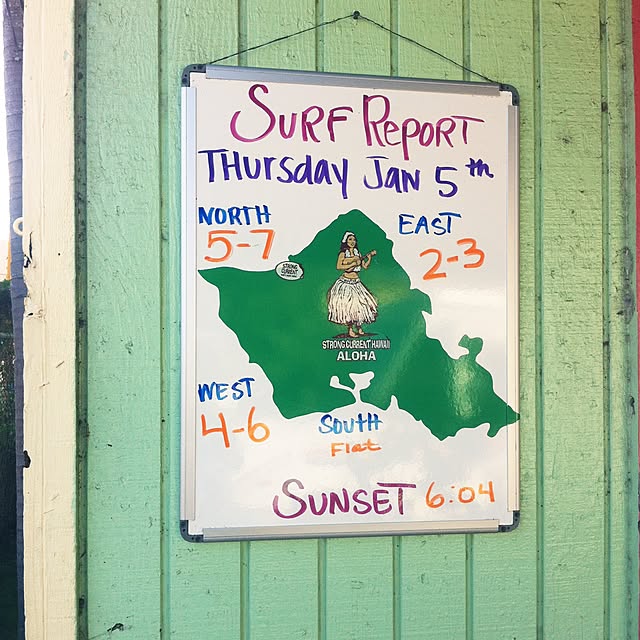 SURF REPORT
THURSDAY JAN 5th
NORTH
5-7
EAST
2-3
STRONG
CURRENT
STRONG CURRENT HAWAII
ALOHA
WEST
4-6
SOUTH
Flat
SUNSET 6:04